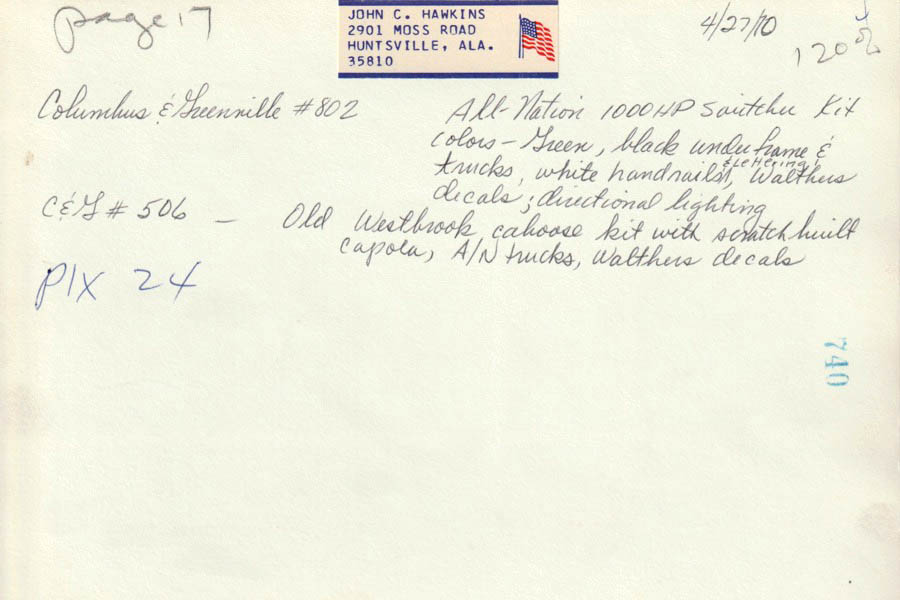 page 17
JOHN C. HAWKINS
2901 MOSS ROAD
HUNTSVILLE, ALA.
35810
4/27/70
120%
Columbus & Greenville #802
All-Nation 1000HP Switcher Kit
colors - Green, black underframe &
trucks, white handrails & lettering, Walthers
decals; directional lighting
C&G # 506 - Old Westbrook caboose kit with scratchbuilt
cupola, A/N trucks, Walthers decals
PIX 24
740